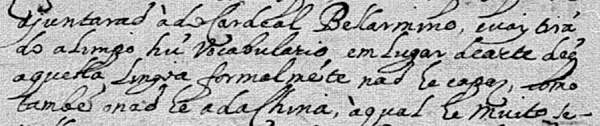 ajuntarad à do Cardeal Bellarmino, e vai tirã
do a limpo hũ Vocabulario, em lugar de arte de q̃
aquella Lingoa formalmẽte nad he capaz, como
tambẽ o nad he a da China, à qual he muito se-